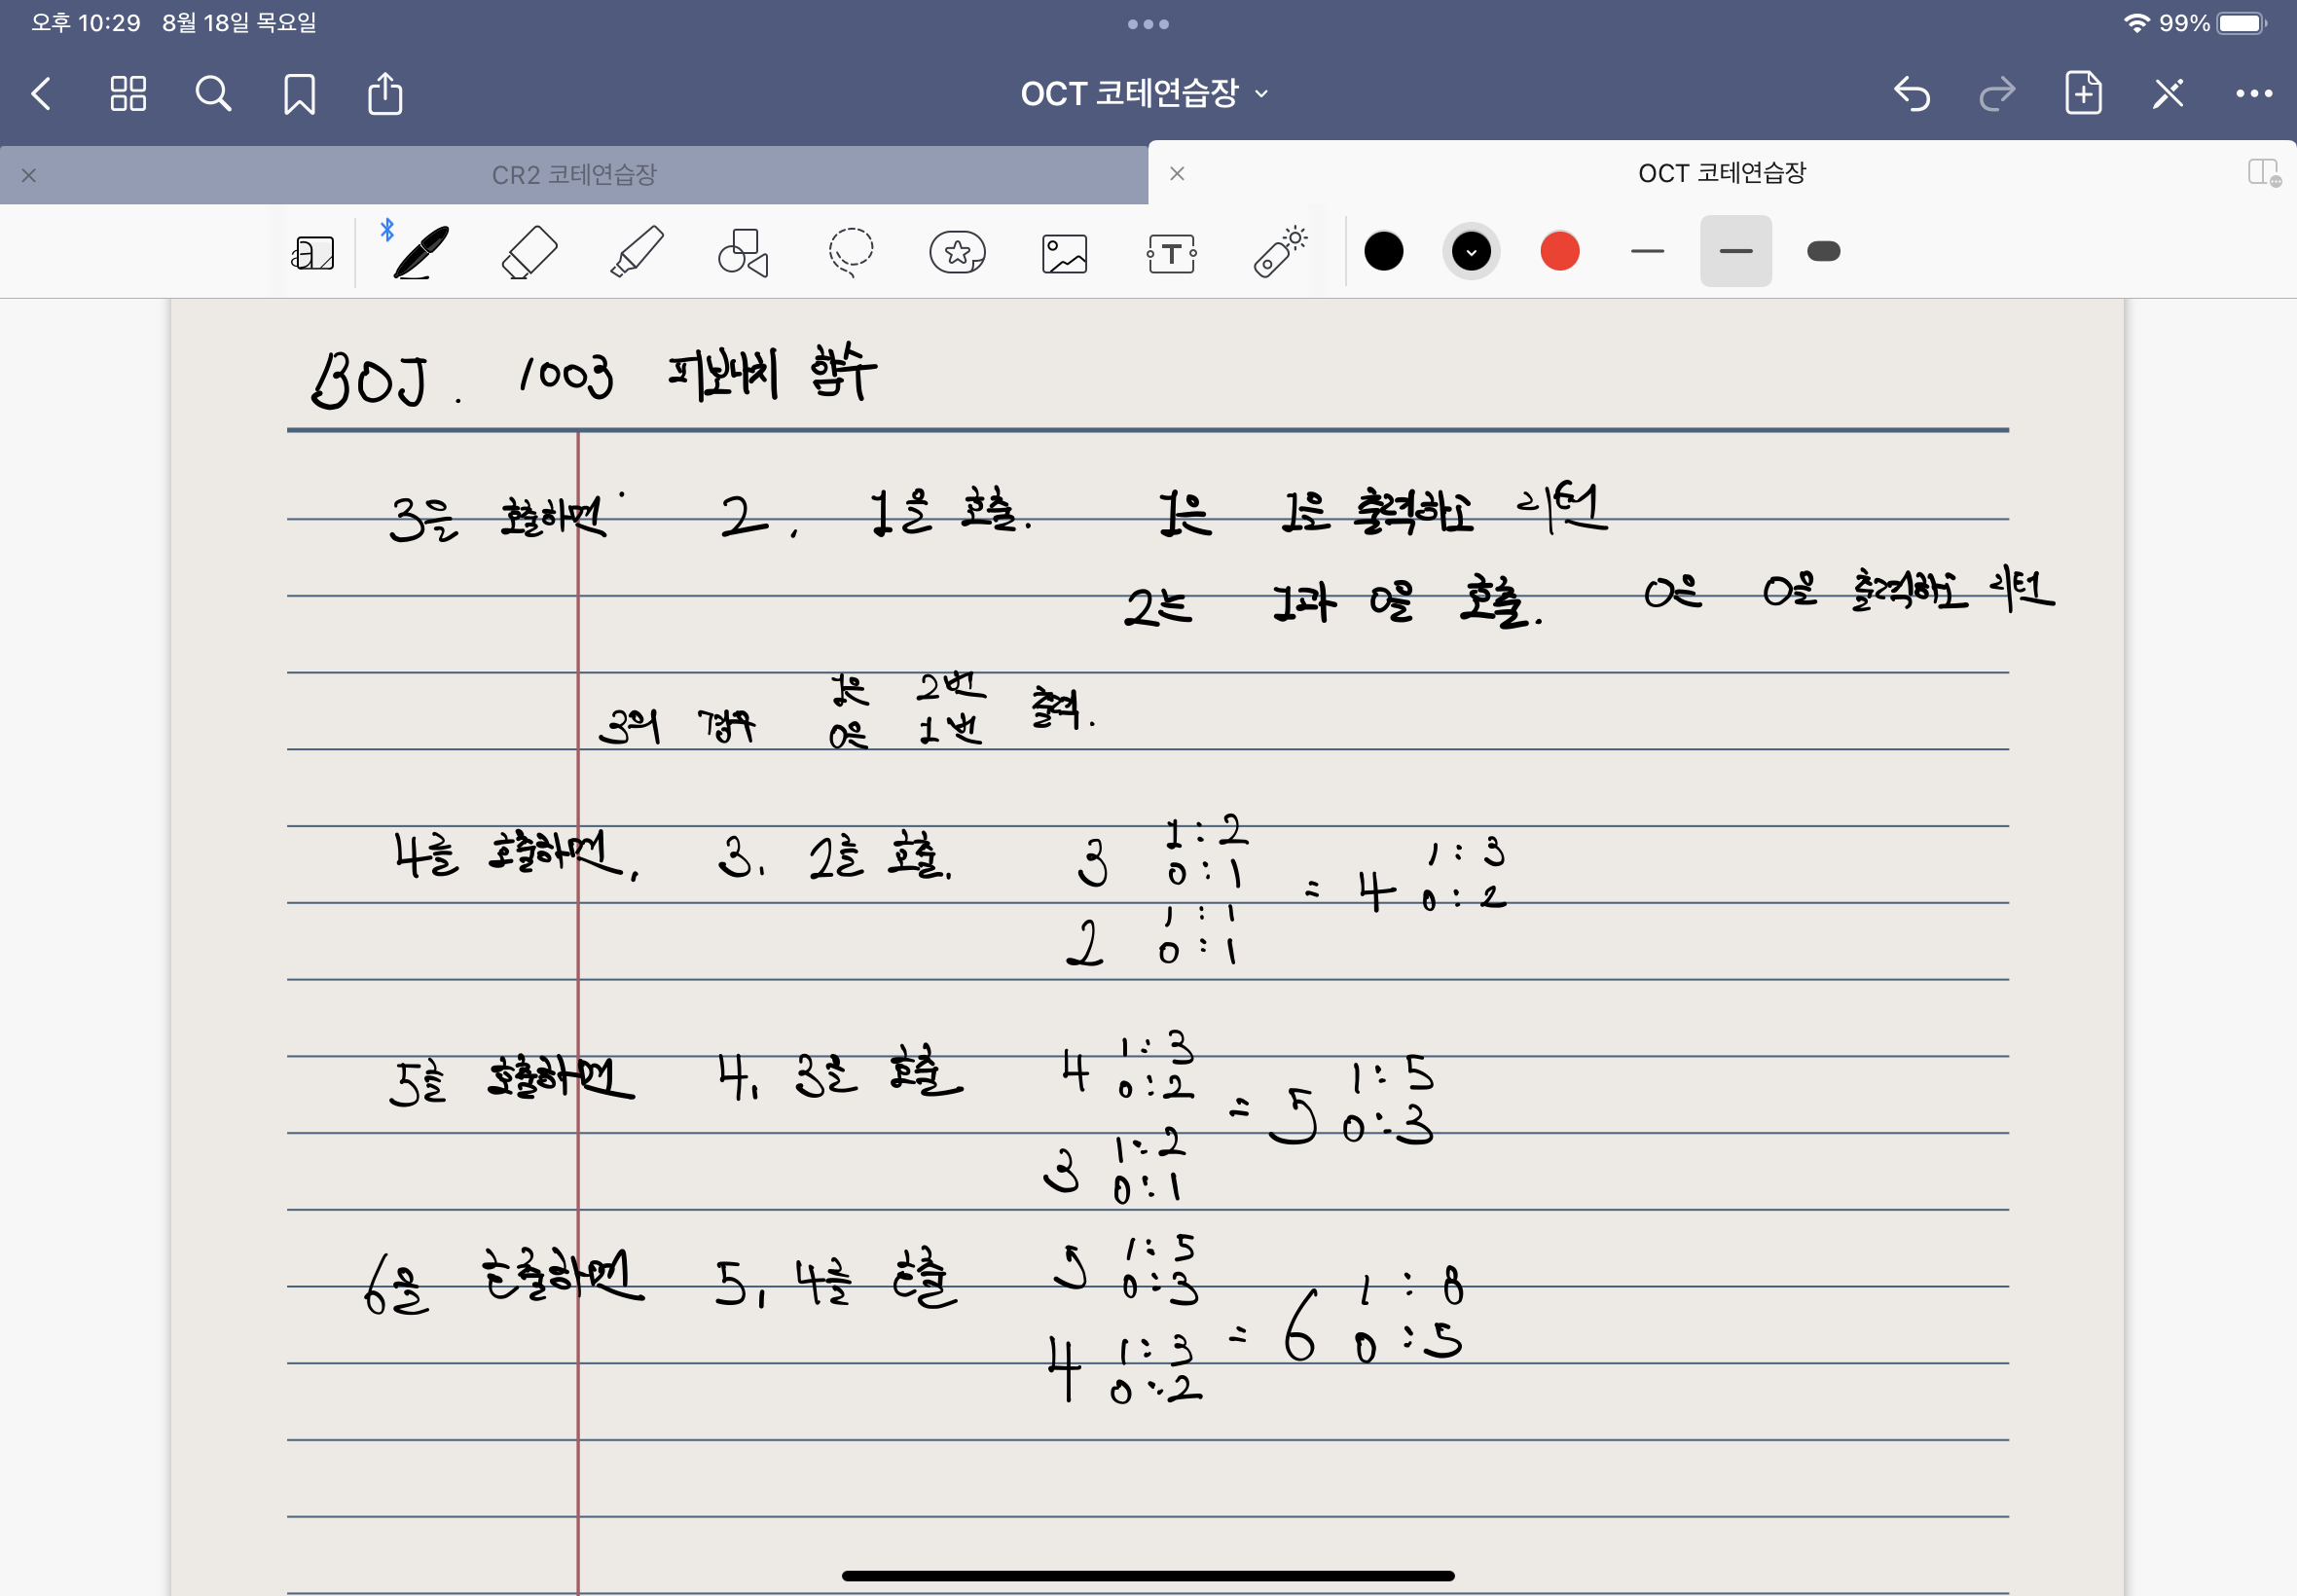 오후 10:29 8월 18일 목요일 99%
OCT 코테연습장
CR2 코테연습장 OCT 코테연습장
BOJ. 1003 피보나치 함수
3을 호출하면 2, 1을 호출. 1은 1을 출력하고 리턴
2는 1과 0을 호출. 0은 0을 출력하고 리턴
3의 경우 1은 2번 0은 1번 출력.
4를 호출하면, 3, 2를 호출.
3 1:2 0:1
2 1:1 0:1
= 4 1:3 0:2
5를 호출하면 4, 3을 호출
4 1:3 0:2
3 1:2 0:1
= 5 1:5 0:3
6을 호출하면 5, 4를 호출
5 1:5 0:3
4 1:3 0:2
= 6 1:8 0:5